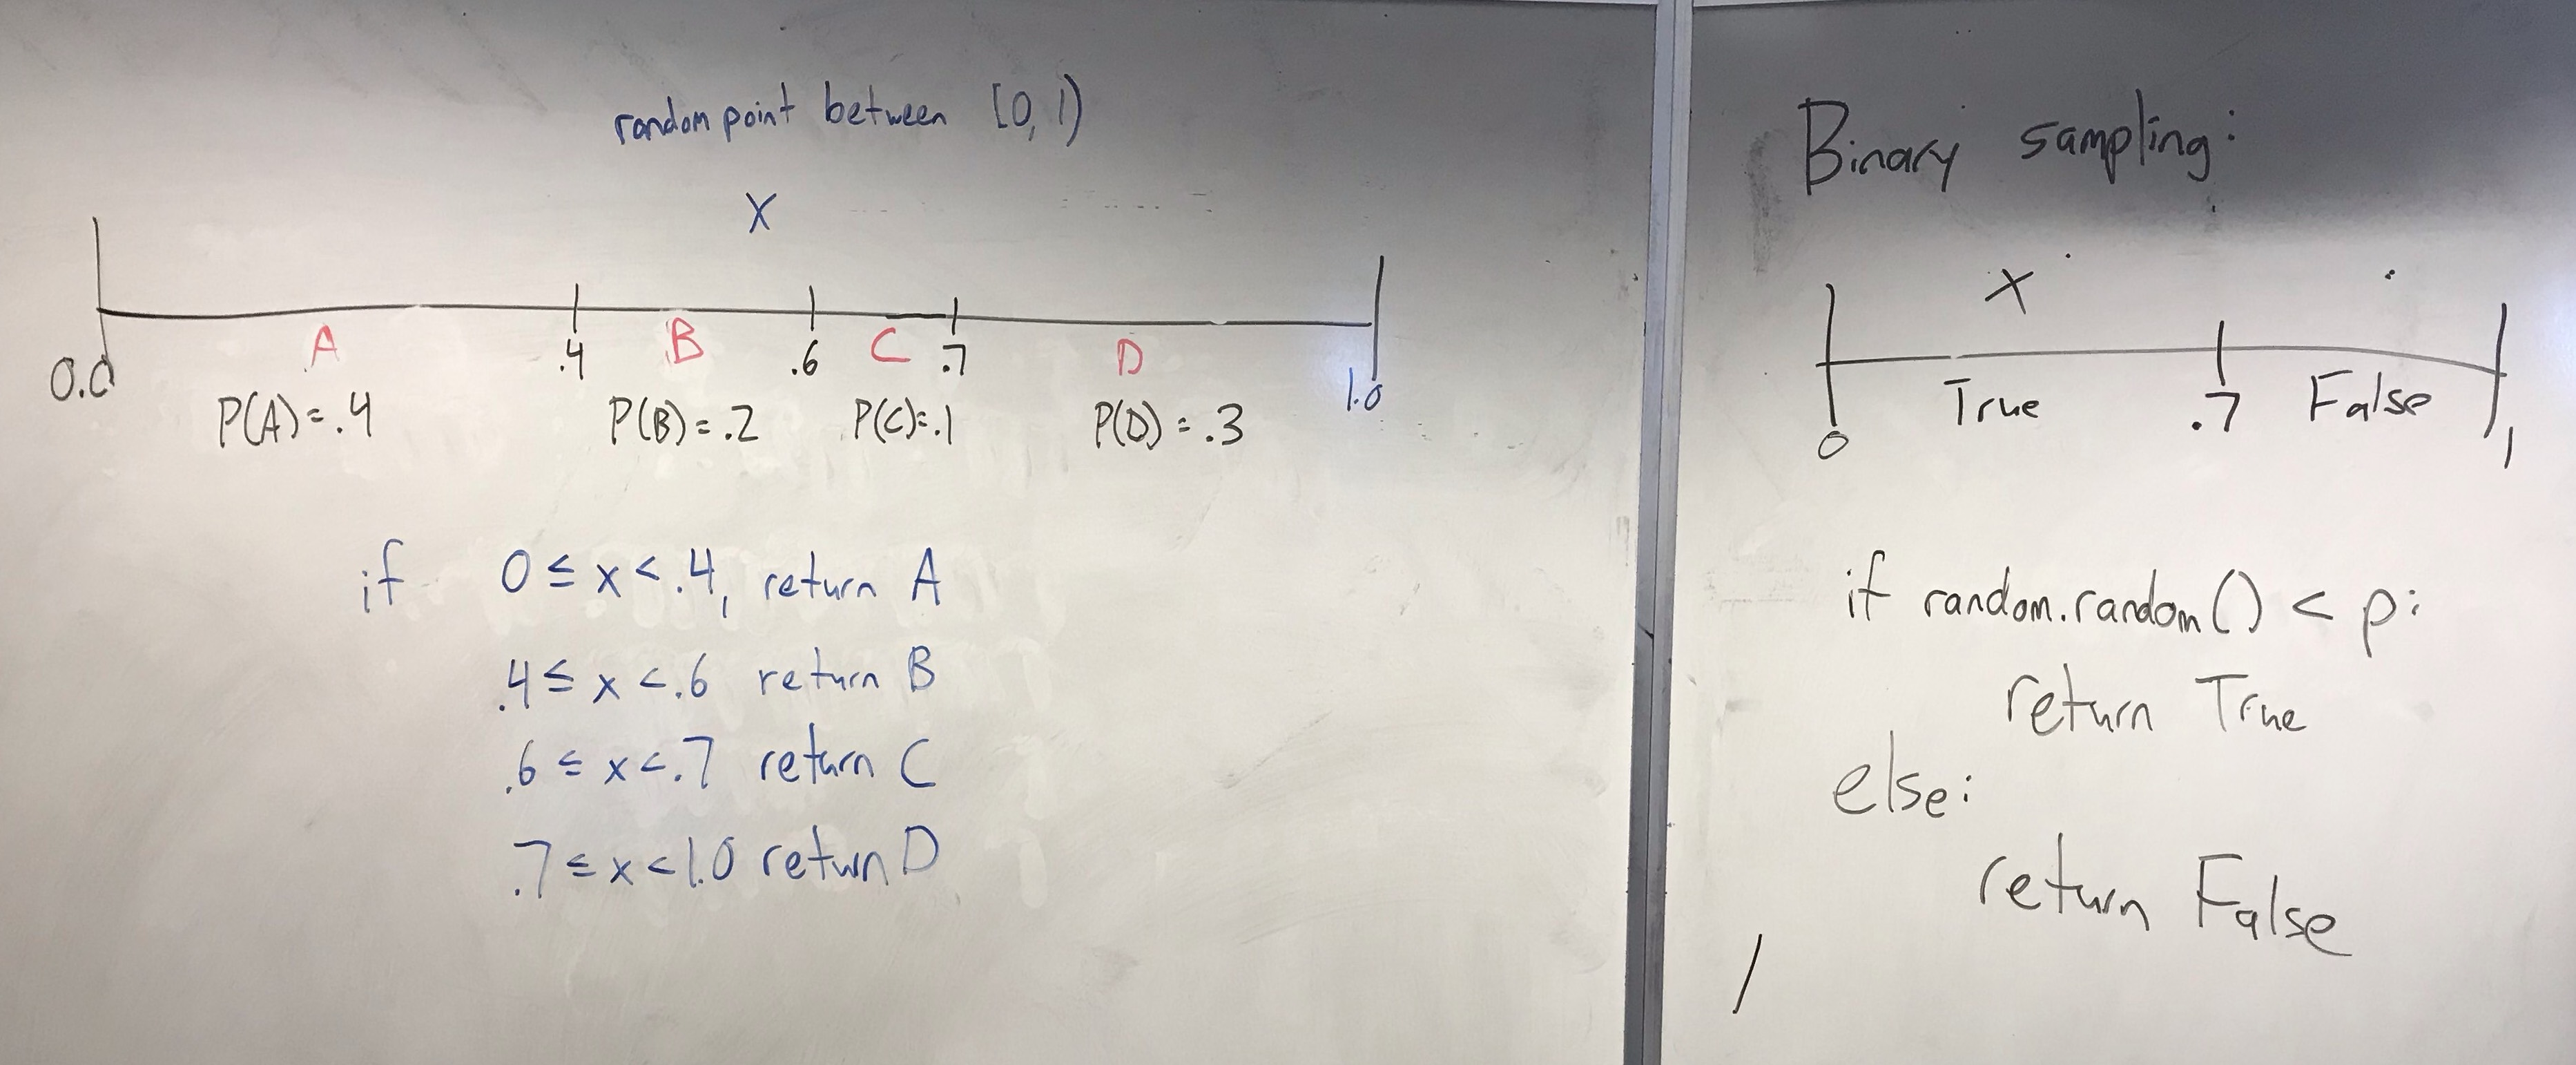 random point between [0, 1)
X
A .4 B .6 C .7 D
0.0 1.0
P(A) = .4 P(B) = .2 P(C) = .1 P(D) = .3
if 0 ≤ x < .4, return A
.4 ≤ x < .6 return B
.6 ≤ x < .7 return C
.7 ≤ x < 1.0 return D
Binary sampling:
X
0 True .7 False 1
if random.random() < p:
return True
else:
return False